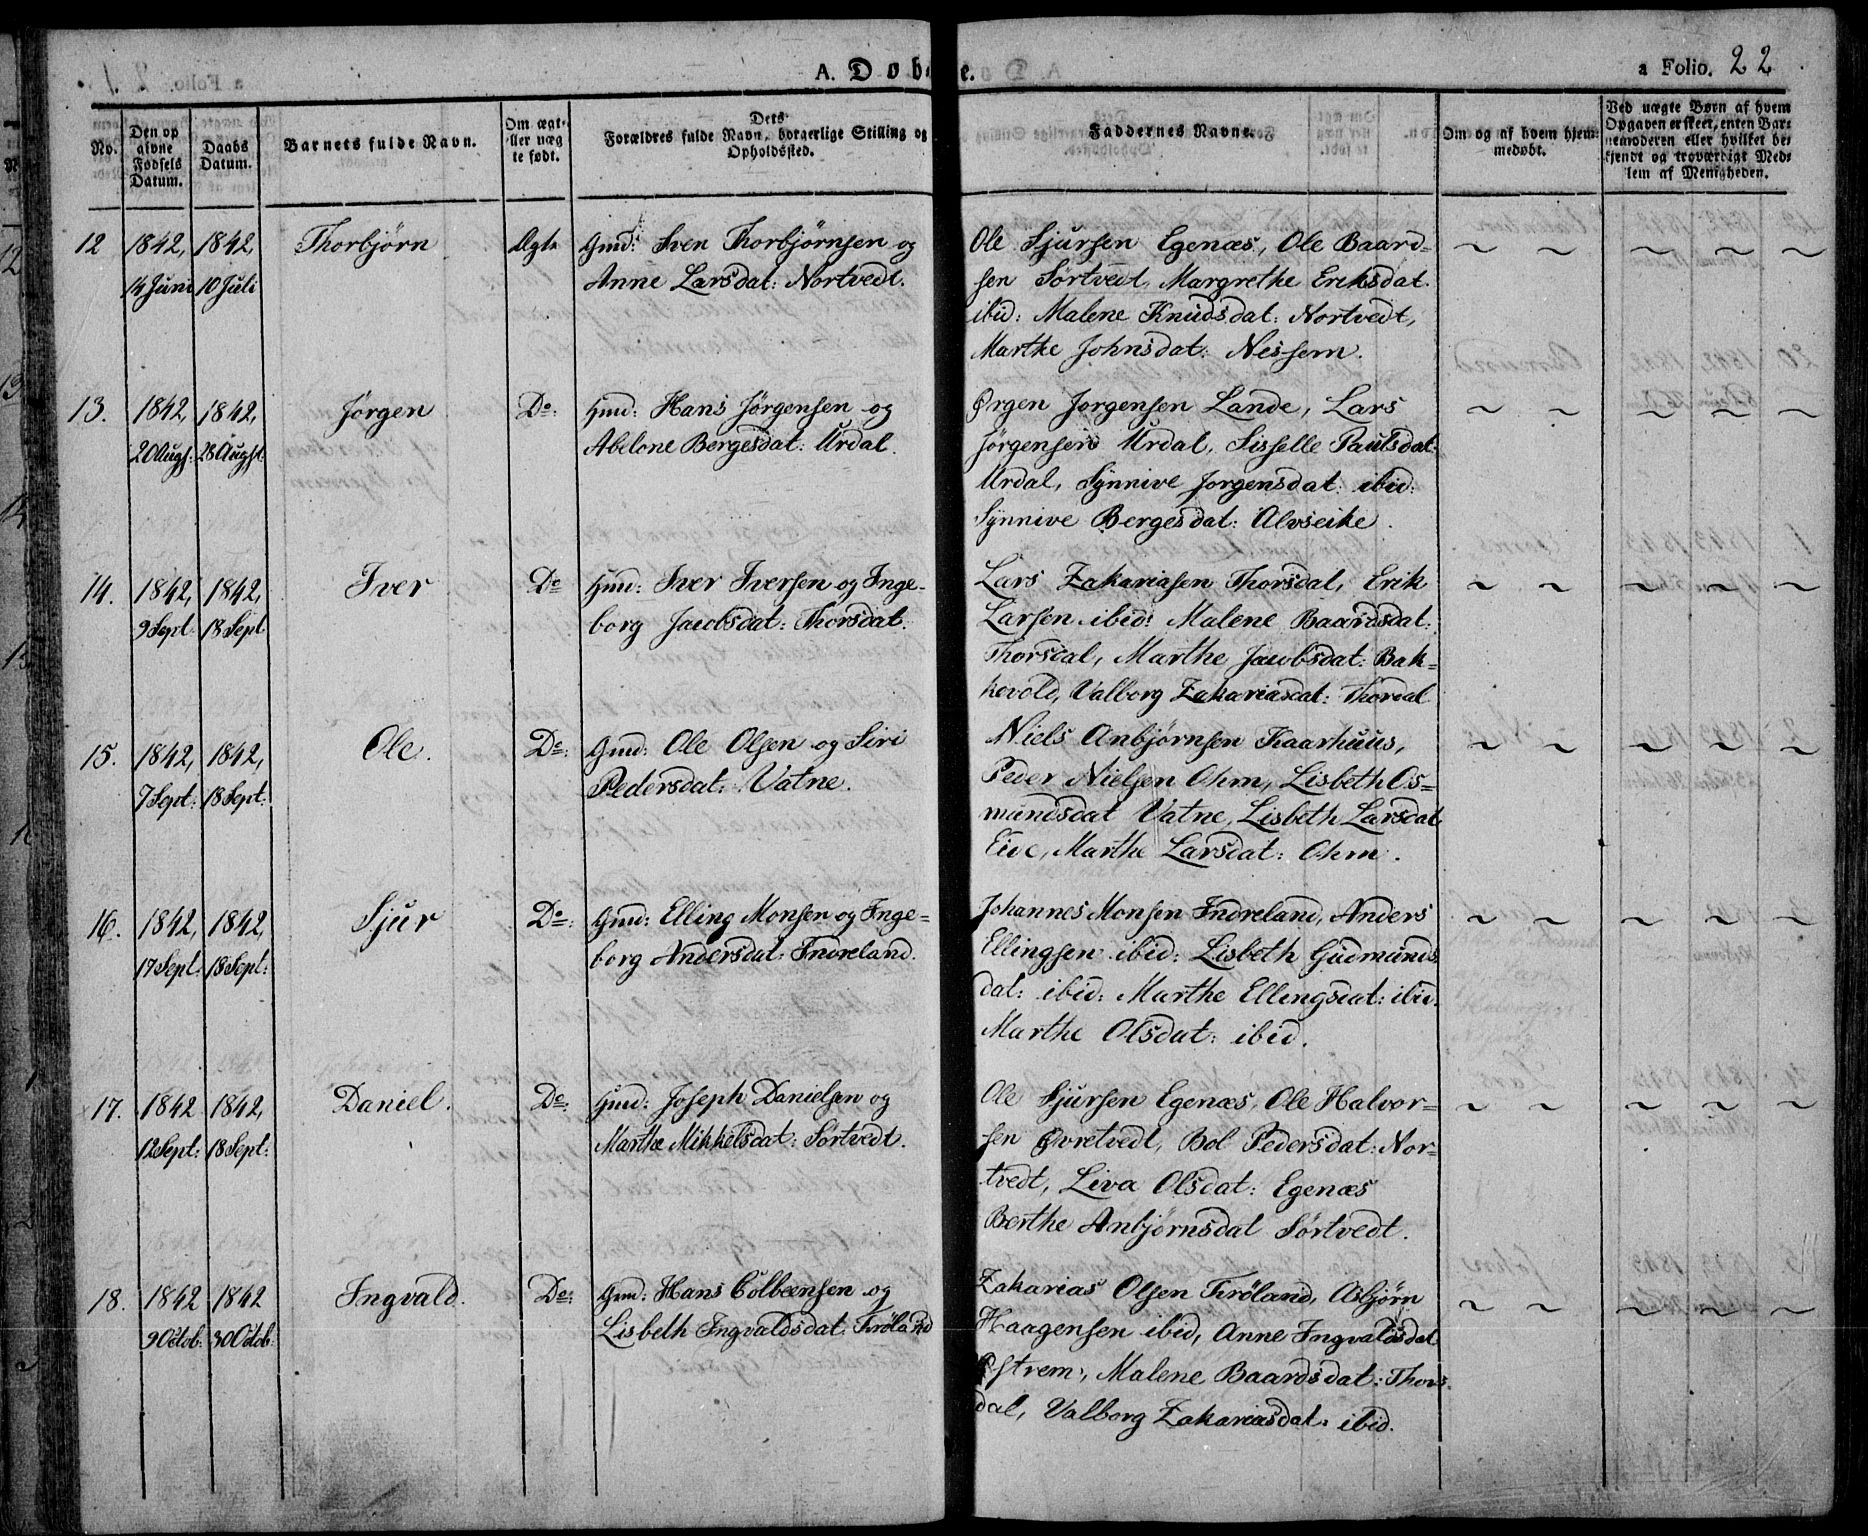 A. Døb e.
a Folio. 22
No.
Den op
givne
Fødsels
Datum.
Daabs
Datum.
Barnets fulde Navn.
Om ægt-
eller uæg
te født.
Dets
Forældres fulde Navn, borgerlige Stilling og
Opholdssted.
Faddernes Navne.
Om og af hvem hjem-
medøbt.
Ved uægte Børn af hvem
Opgaven er skeet, enten Bar-
nemoderen eller hvilket be-
kjendt og troværdigt Med-
lem af Menigheden.
12 1842, 1842, Thorbjørn Ægte Gmd: Sven Thorbjørnsen og
14 Juni 10 Juli Anne Larsdat: Nortvedt.
Ole Sjursen Egenæs, Ole Baard-
sen Sørtvedt, Margrethe Eriksdat.
ibid: Malene Knudsdat: Nortvedt,
Marthe Johnsdat: Nessem.
13. 1842, 1842, Jørgen Do: Gmd: Hans Jørgensen og
20 Augs: 28 Augst: Abelone Bergesdat: Urdal.
Ørgen Jorgensen Lande, Lars
Jørgensen Urdal, Sisselle Paulsdat:
Urdal, Synnive Jorgensdat: ibid:
Synnive Bergesdat: Alvseike.
14. 1842, 1842, Iver Do Gmd: Iver Iversen og Inge-
9 Sept 18 Sept borg Jacobsdat: Thorsdal.
Lars Zakariasen Thorsdal, Erik
Larsen ibid: Malene Baardsdat.
Thorsdal, Marthe Jacobsdat: Bak-
kevold, Valborg Zakariasdat: Thorsdal
15. 1842, 1842, Ole. Do: Gmd: Ole Olsen og Siri
7 Sept: 18 Sept: Pedersdat: Vatne.
Niels Anbjørnsen Kaarhuus,
Peder Nielsen Ohm, Lisbeth Os-
mundsdat Vatne, Lisbeth Larsdat
Eive, Marthe Larsdat: Ohm.
16. 1842, 1842, Sjur Do: Gmd: Elling Monsen og Inge-
17 Sept: 18 Sept: borg Andersdat: Indreland.
Johannes Monsen Indreland, Anders
Ellingsen ibid: Lisbeth Gudmunds-
dat: ibid: Marthe Ellingsdat: ibid.
Marthe Olsdat: ibid.
17. 1842 1842, Daniel. Do: Gmd: Joseph Danielsen og
12 Sept: 18 Sept: Marthe Mikkelsdat: Sørtvedt.
Ole Sjursen Egenæs, Ole Halvor-
sen Øvretvedt, Bol Pedersdat: Nor-
tvedt, Liva Olsdat: Egenæs
Berthe Anbjørnsdat Sørtvedt.
18. 1842 1842 Ingvald. Do: Gmd: Hans Colbeensen og
9 Octob: 30 Octob: Lisbeth Ingvaldsdat. Frøland
Zakarias Olsen Frøland, Asbjørn
Haagensen ibid, Anne Ingvaldsdat
Østrem, Malene Baardsdat: Thors-
dal, Valborg Zakariasdat: ibid.